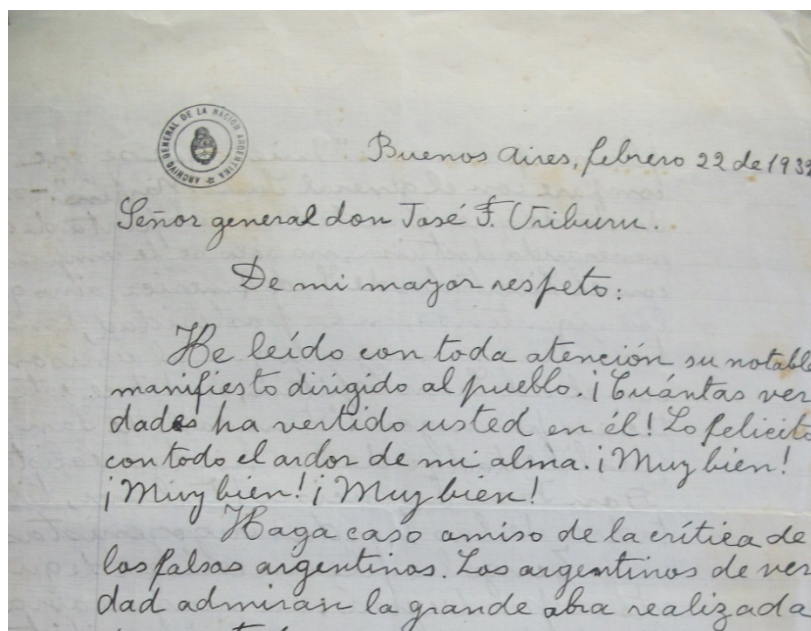 ARCHIVO GENERAL DE LA NACION ARGENTINA
Buenos Aires, febrero 22 de 1932
Señor general don José F. Uriburu.
De mi mayor respeto:
He leído con toda atención su notable
manifiesto dirigido al pueblo. ¡Cuántas ver
dades ha vertido usted en él! Lo felicito
con todo el ardor de mi alma. ¡Muy bien!
¡Muy bien! ¡Muy bien!
Haga caso omiso de la crítica de
los falsos argentinos. Los argentinos de ver
dad admiran la grande obra realizada